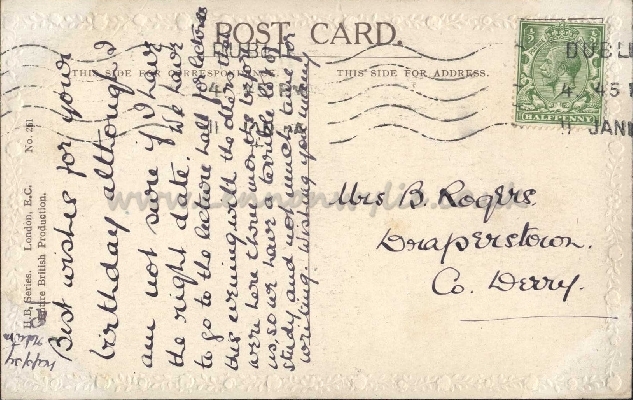 POST CARD.
THIS SIDE FOR CORRESPONDENCE.
THIS SIDE FOR ADDRESS.
HALFPENNY
DUBL
4. 45 P
11 JAN
Best wishes for your
birthday although I
am not sure if I have
the right date. We have
to go to the lecture hall for lectures
this evening with the others that
were here three months before
us, so we have a terrible lot of
study and not much time for
writing. Wishing you many
happy
Mrs B. Rogers
Draperstown.
Co. Derry.
H.B. Series. London, E.C. No. 251
Entire British Production.